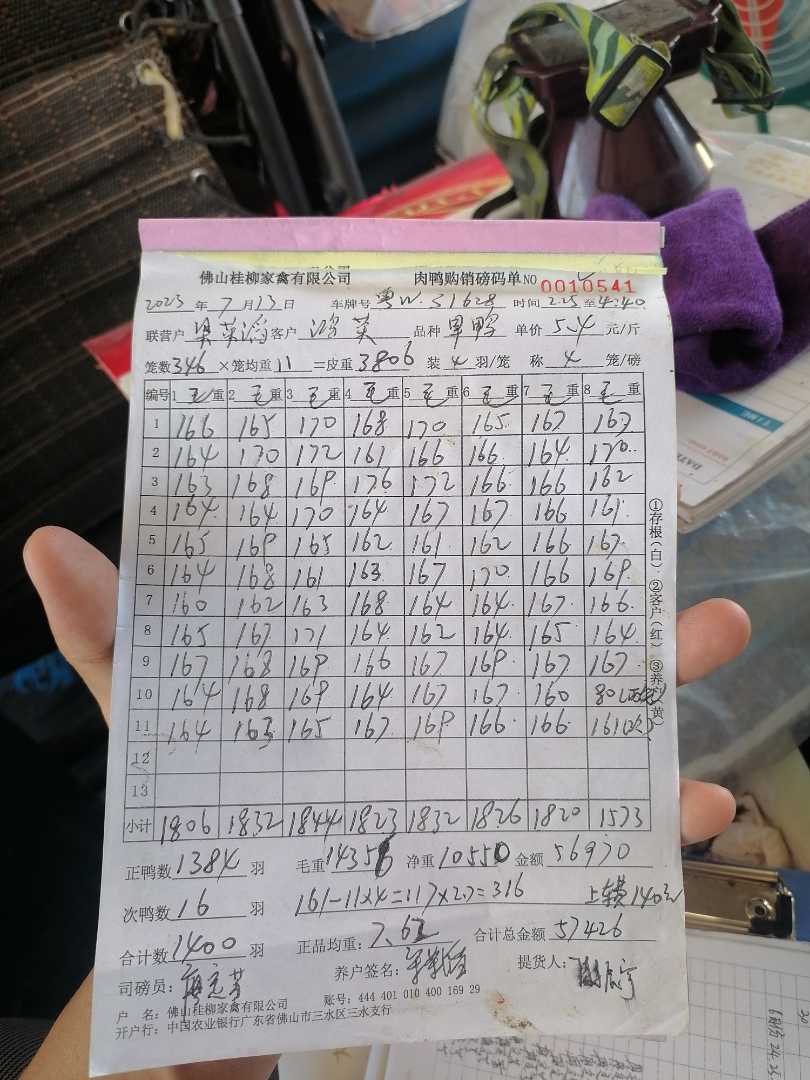 佛山桂柳家禽有限公司 肉鸭购销磅码单 NO 0010541
2023 年 7 月 13 日 车牌号 粤W.S1628 时间 2:25 至 4:40
联营户 客户 鸿英 品种 单价 5.4 元/斤
笼数 346 ×笼均重 11 =皮重 3806 装 4 羽/笼 称 4 笼/磅
编号 1 毛 重 2 毛 重 3 毛 重 4 毛 重 5 毛 重 6 毛 重 7 毛 重 8 毛 重
1 166 165 170 168 170 165 167 167
2 164 170 172 161 166 166 164 170
3 163 168 169 176 172 166 166 162
4 164 164 170 164 167 167 166 161
5 165 169 165 162 161 162 166 167
6 164 168 161 163 167 170 166 169
7 160 162 163 168 164 164 167 166
8 165 167 171 164 162 164 165 164
9 167 168 169 166 167 169 167 167
10 164 168 169 164 167 167 160 80
11 164 163 165 167 169 166 166 161(次)
12
13
小计 1806 1832 1844 1823 1832 1826 1820 1573
正鸭数 1384 羽 毛重 14356 净重 10550 金额 56970
次鸭数 16 羽 161-11×4=117×2.7=316 上车费140元
合计数 1400 羽 正品均重: 7.62 合计总金额 57426
司磅员: 养户签名: 提货人:
户 名: 佛山桂柳家禽有限公司 账号: 444 401 010 400 169 29
开户行: 中国农业银行广东省佛山市三水区三水支行
①存根(白) ②客户(红) ③养 黄)